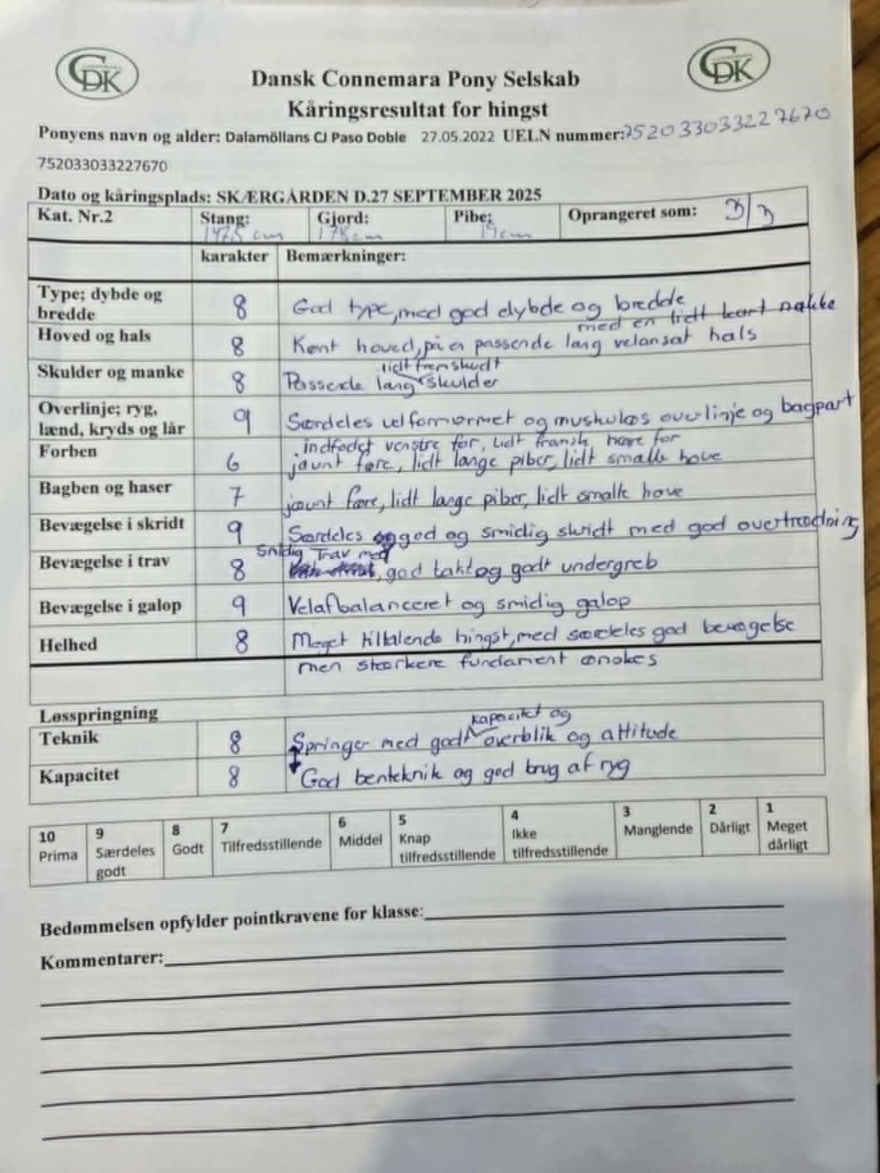 CDK
CDK
Dansk Connemara Pony Selskab
Kåringsresultat for hingst
Ponyens navn og alder: Dalamöllans CJ Paso Doble 27.05.2022 UELN nummer: 752033033227670
752033033227670
Dato og kåringsplads: SKÆRGÅRDEN D.27 SEPTEMBER 2025
Kat. Nr.2 Stang: 147,5 cm Gjord: 178 cm Pibe: 19 cm Oprangeret som: 3/3
karakter Bemærkninger:
Type; dybde og bredde 8 God type, med god dybde og bredde
Hoved og hals 8 Kønt hoved, på en passende lang velansat hals
med en lidt kort nakke
Skulder og manke 8 Passende lang lidt fremskudt skulder
Overlinje; ryg, lænd, kryds og lår 9 Særdeles velformørmet og muskuløs overlinje og bagpart
Forben 6 indfødet venstre for, lidt fransk højre for
jævnt føre, lidt lange piber, lidt smalle hove
Bagben og haser 7 jævnt føre, lidt lange piber, lidt smalle hove
Bevægelse i skridt 9 Særdeles god og smidig skridt med god overtrædning
Bevægelse i trav 8 Smidig Trav med, god takt og godt undergreb
Bevægelse i galop 9 Velafbalanceret og smidig galop
Helhed 8 Meget tiltalende hingst, med særdeles god bevægelse
men stærkere fundament ønskes
Løsspringning
Teknik 8 Springer med god kapacitet og overblik og attitude
Kapacitet 8 God benteknik og god brug af ryg
10 Prima 9 Særdeles godt 8 Godt 7 Tilfredsstillende 6 Middel 5 Knap tilfredsstillende 4 Ikke tilfredsstillende 3 Manglende 2 Dårligt 1 Meget dårligt
Bedømmelsen opfylder pointkravene for klasse:
Kommentarer: